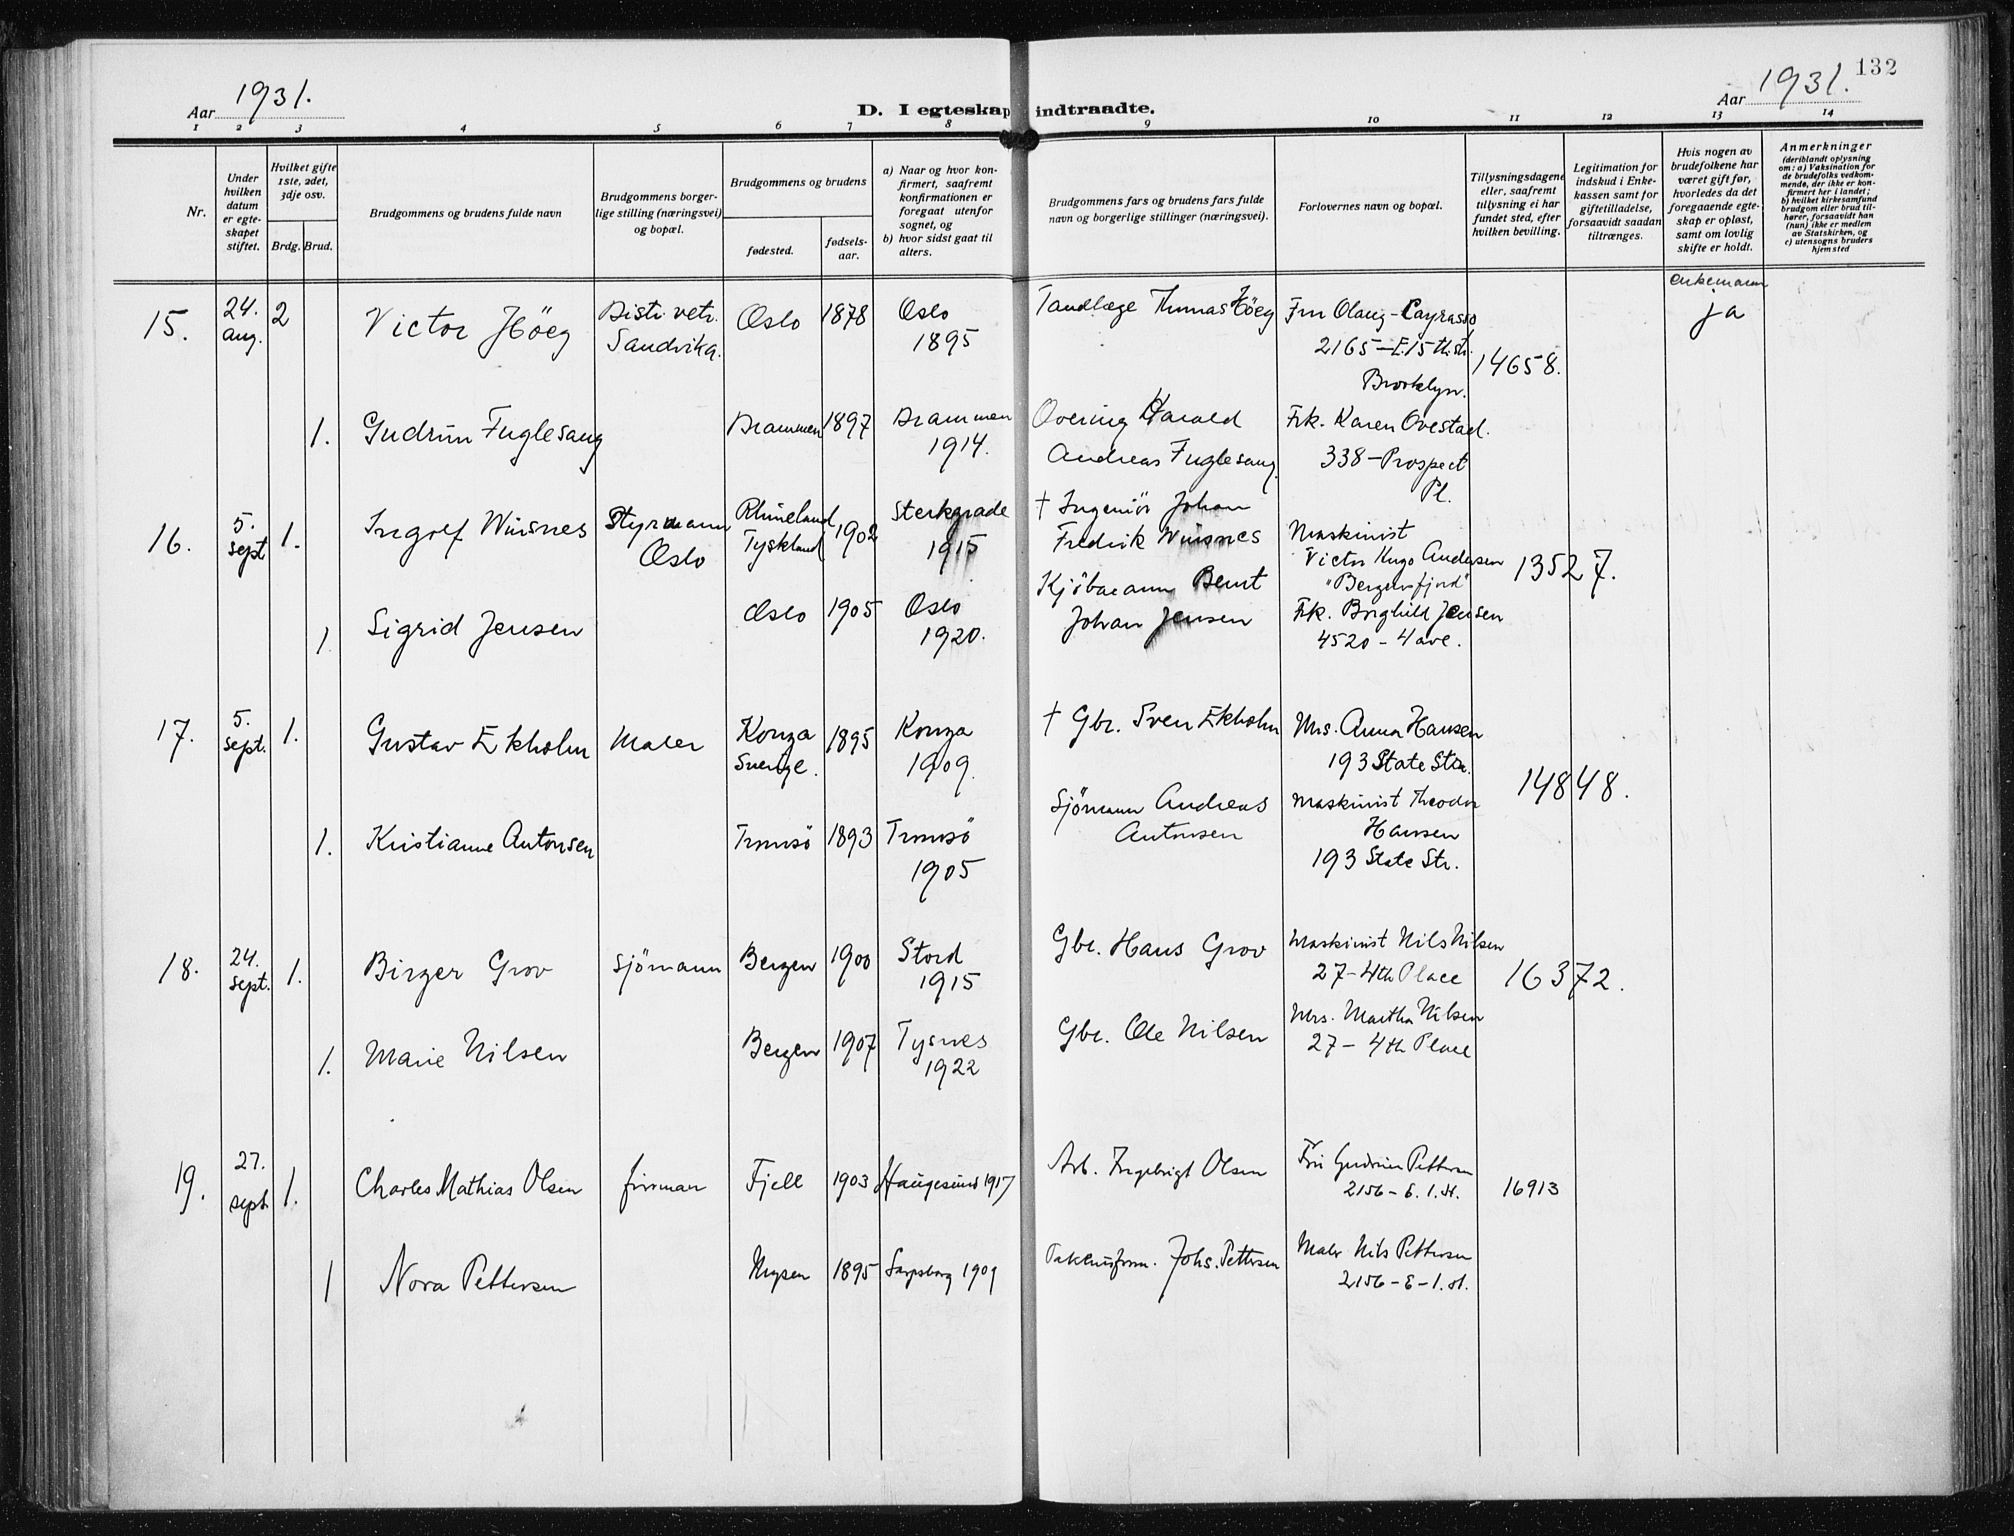 132
Aar 1931.
D. I egteskap indtraadte.
Aar 1931.
1 2 3 4 5 6 7 8 9 10 11 12 13 14
Nr.
Under hvilken datum er egteskapet stiftet.
Hvilket gifte 1ste, 2det, 3dje osv.
Brdg. Brud.
Brudgommens og brudens fulde navn
Brudgommens borgerlige stilling (næringsvei) og bopæl.
Brudgommens og brudens
fødested.
fødselsaar.
a) Naar og hvor konfirmert, saafremt konfirmationen er foregaat utenfor sognet, og
b) hvor sidst gaat til alters.
Brudgommens fars og brudens fars fulde navn og borgerlige stillinger (næringsvei).
Forlovernes navn og bopæl.
Tillysningsdagene eller, saafremt tillysning ei har fundet sted, efter hvilken bevilling.
Legitimation for indskud i Enkekassen samt for giftetilladelse, forsaavidt saadan tiltrænges.
Hvis nogen av brudefolkene har været gift før, hvorledes da det foregaaende egteskap er opløst, samt om lovlig skifte er holdt.
Anmerkninger
(deriblandt oplysning om: a) Vaksination for de brudefolks vedkommende, der ikke er konfirmert her i landet; b) hvilket kirkesamfund brudgom eller brud tilhører, forsaavidt han (hun) ikke er medlem av Statskirken, og c) utensogns bruders hjemsted
15. 24. aug. 2 Victor Höeg Distr. vetr. Sandvika. Oslo 1878 Oslo 1895 Tandlæge Thomas Höeg Fru Olaug Cayrasso 2165 - E. 15 th. str. Brooklyn. 14658. enkemann ja
1. Gudrun Fuglesang Drammen 1897 Drammen 1914. Harald Andreas Fuglesang Frk. Karen Ovestad. 338 - Prospect Pl.
16. 5. sept 1. Ingolf Wiisnes Styrmann Oslo Rhineland Tyskland 1902 Sterkrade 1915 † Ingeniör Johan Fredrik Wiisnes Maskinist Victor Hugo Andersen "Bergensfjord" 13527.
1 Sigrid Jensen Oslo 1905 Oslo 1920. Kjöbmann Bernt Johan Jensen Frk. Borghild Jensen 4520 - 4 ave.
17. 5. sept. 1. Gustav Ekholm Maler Konga Sverige. 1895 Konga 1909. † Gbr. Sven Ekholm Mrs. Anna Hansen 193 State Str. 14848.
1. Kristianne Antonsen Tromsö 1893 Tromsö 1905 Sjömann Andreas Antonsen Maskinist Theodor Hansen 193 State Str.
18. 24. sept. 1. Birger Grov Sjömann Bergen 1900 Stord 1915 Gbr. Hans Grov Maskinist Nils Nilsen 27 - 4th Place 16372.
1. Marie Nilsen Bergen 1907 Tysnes 1922 Gbr. Ole Nilsen Mrs. Martha Nilsen 27 - 4th Place
19. 27. sept 1. Charles Mathias Olsen firman Fjell 1903 Haugesund 1917 Arb. Ingebrigt Olsen Fru Gudrun Pettersen 2156 - E. 1. st. 16913
1 Nora Pettersen Mysen 1895 Sarpsborg 1909 Johs. Pettersen Maler Nils Pettersen 2156 - E - 1. st.